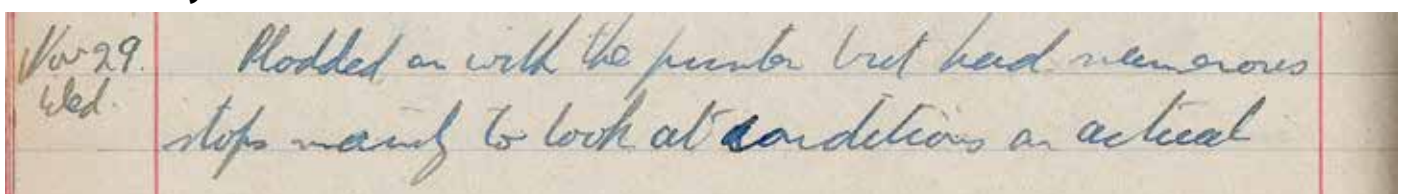 Nov 29. Plodded on with the printer but had numerous
Wed. stops mainly to look at conditions on actual